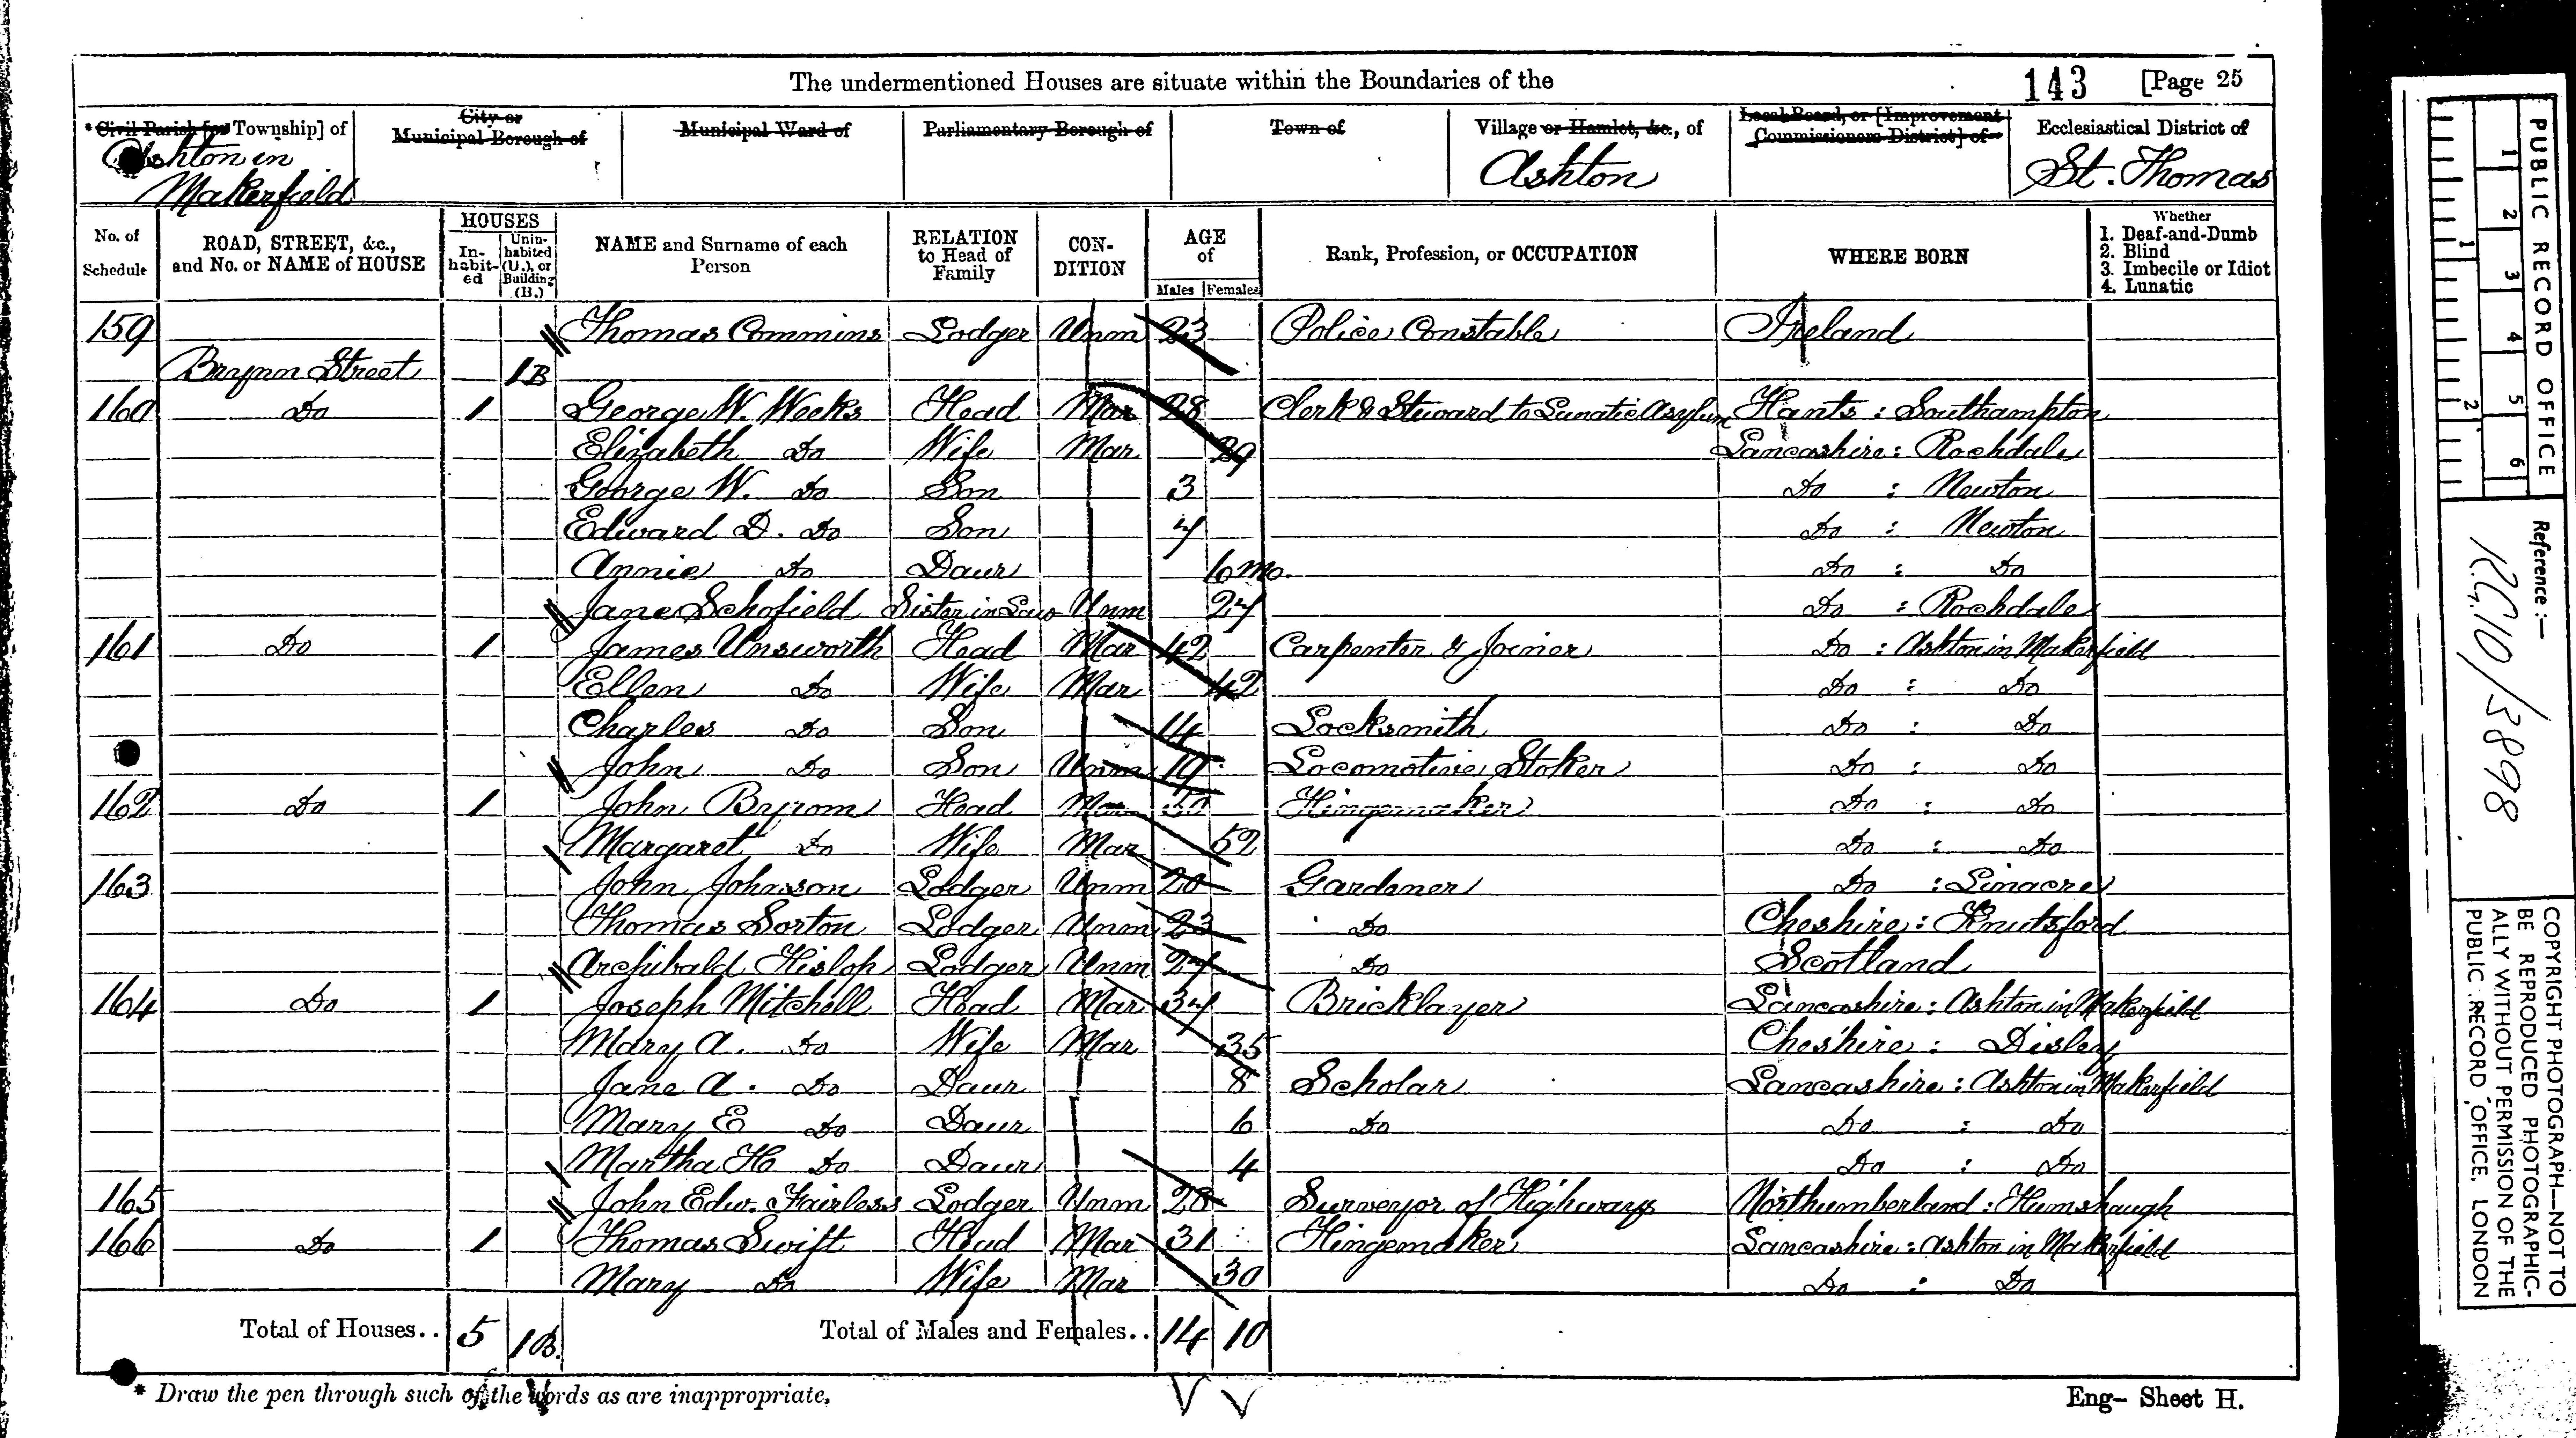 The undermentioned Houses are situate within the Boundaries of the 143 [Page 25
*Civil Parish [or Township] of City or Municipal Borough of Municipal Ward of Parliamentary Borough of Town of Village or Hamlet, &c., of Local Board, or [Improvement Commissioners District] of Ecclesiastical District of
Ashton in Makerfield Ashton St. Thomas
No. of Schedule ROAD, STREET, &c., and No. or NAME of HOUSE HOUSES Inhabited Uninhabited (U.), or Building (B.) NAME and Surname of each Person RELATION to Head of Family CONDITION AGE of Males Females Rank, Profession, or OCCUPATION WHERE BORN Whether 1. Deaf-and-Dumb 2. Blind 3. Imbecile or Idiot 4. Lunatic
159 Thomas Commins Lodger Unm 23 Police Constable Ireland
Brynn Street 1B
160 Do 1 George W. Weeks Head Mar 28 Clerk & Steward to Lunatic Asylum Hants : Southampton
Elizabeth Do Wife Mar 29 Lancashire : Rochdale
George W. Do Son 3 Do : Newton
Edward D. Do Son Do : Newton
Annie Do Daur 6 Mo. Do : Do
Jane Schofield Sister in Law Unm 24 Do : Rochdale
161 Do 1 James Unsworth Head Mar 42 Carpenter & Joiner Do : Ashton in Makerfield
Ellen Do Wife Mar 42 Do : Do
Charles Do Son 14 Locksmith Do : Do
John Do Son Unm 19 Locomotive Stoker Do : Do
162 Do 1 John Byrom Head Mar Hingemaker Do : Do
Margaret Do Wife Mar 52 Do : Do
163 John Johnson Lodger Unm 20 Gardener Do : Linacre
Thomas Sorton Lodger Unm 23 Do Cheshire : Knutsford
Archibald Hislop Lodger Unm 24 Do Scotland
164 Do 1 Joseph Mitchell Head Mar 34 Bricklayer Lancashire : Ashton in Makerfield
Mary A. Do Wife Mar 35 Cheshire : Disley
Jane A. Do Daur 8 Scholar Lancashire : Ashton in Makerfield
Mary E Do Daur 6 Do Do : Do
Martha H Do Daur 4 Do : Do
165 John Edw. Fairless Lodger Unm 28 Surveyor of Highways Northumberland : Humshaugh
166 Do 1 Thomas Swift Head Mar 31 Hingemaker Lancashire : Ashton in Makerfield
Mary Do Wife Mar 30 Do : Do
Total of Houses.. 5 1B. Total of Males and Females.. 14 10
* Draw the pen through such of the words as are inappropriate.
Eng- Sheet H.
PUBLIC RECORD OFFICE
1 2 3 4 5 6
1 2
Reference :—
R.G. 10/3898
COPYRIGHT PHOTOGRAPH—NOT TO
BE REPRODUCED PHOTOGRAPHIC-
ALLY WITHOUT PERMISSION OF THE
PUBLIC RECORD OFFICE, LONDON